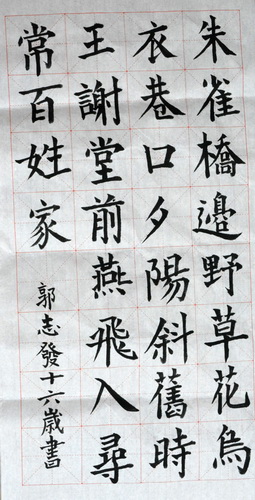 朱雀橋邊野草花烏
衣巷口夕陽斜舊時
王謝堂前燕飛入尋
常百姓家
郭志發十六歲書